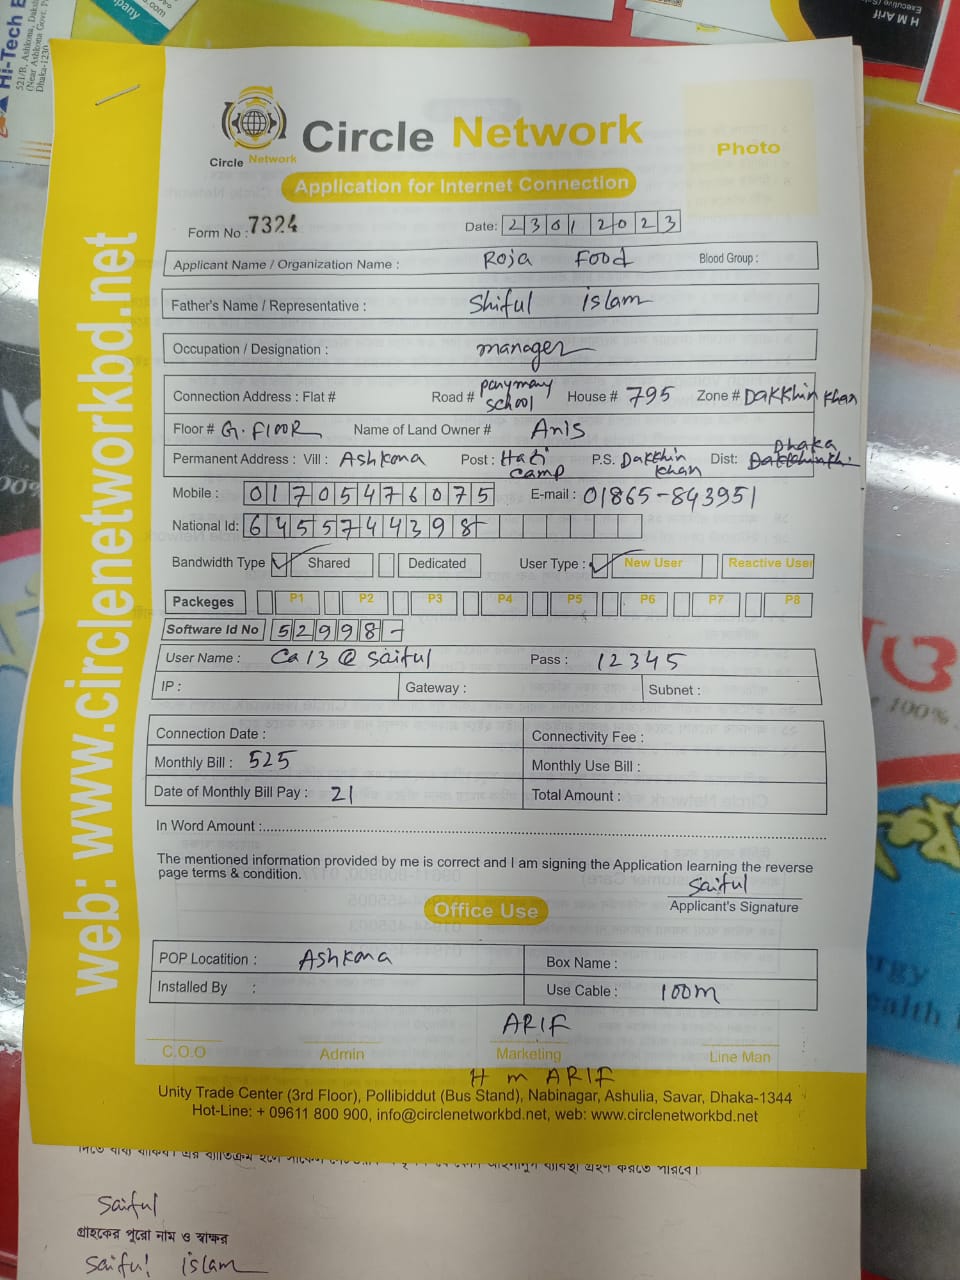 Hi-Tech E
521/B, Ashkona, Daksh
(Near Ashkona Govt. P
Dhaka-1230
H M Arif
web: www.circlenetworkbd.net
Circle Network
Circle Network
Photo
Application for Internet Connection
Form No : 7324
Date: 23012023
Applicant Name / Organization Name : Roja Food Blood Group :
Father's Name / Representative : Shiful islam
Occupation / Designation : manager
Connection Address : Flat # Road # school House # 795 Zone # Dakkhin khan
Floor # G. Floor Name of Land Owner # Anis
Permanent Address : Vill : Ashkona Post : Hati camp P.S. Dakkhin khan Dist: Dhaka
Mobile : 01705476075 E-mail : 01865-843951
National Id: 6455744398
Bandwidth Type Shared Dedicated User Type : New User Reactive User
Packeges P1 P2 P3 P4 P5 P6 P7 P8
Software Id No 52998-
User Name : Ca13@saiful Pass : 12345
IP : Gateway : Subnet :
Connection Date : Connectivity Fee :
Monthly Bill : 525 Monthly Use Bill :
Date of Monthly Bill Pay : 21 Total Amount :
In Word Amount :
The mentioned information provided by me is correct and I am signing the Application learning the reverse
page terms & condition.
Saiful
Applicant's Signature
Office Use
POP Locatition : Ashkona Box Name :
Installed By : Use Cable : 100m
ARIF
C.O.O Admin Marketing Line Man
H m ARIF
Unity Trade Center (3rd Floor), Pollibiddut (Bus Stand), Nabinagar, Ashulia, Savar, Dhaka-1344
Hot-Line: + 09611 800 900, info@circlenetworkbd.net, web: www.circlenetworkbd.net
Saiful
গ্রাহকের পুরো নাম ও স্বাক্ষর
Saiful islam